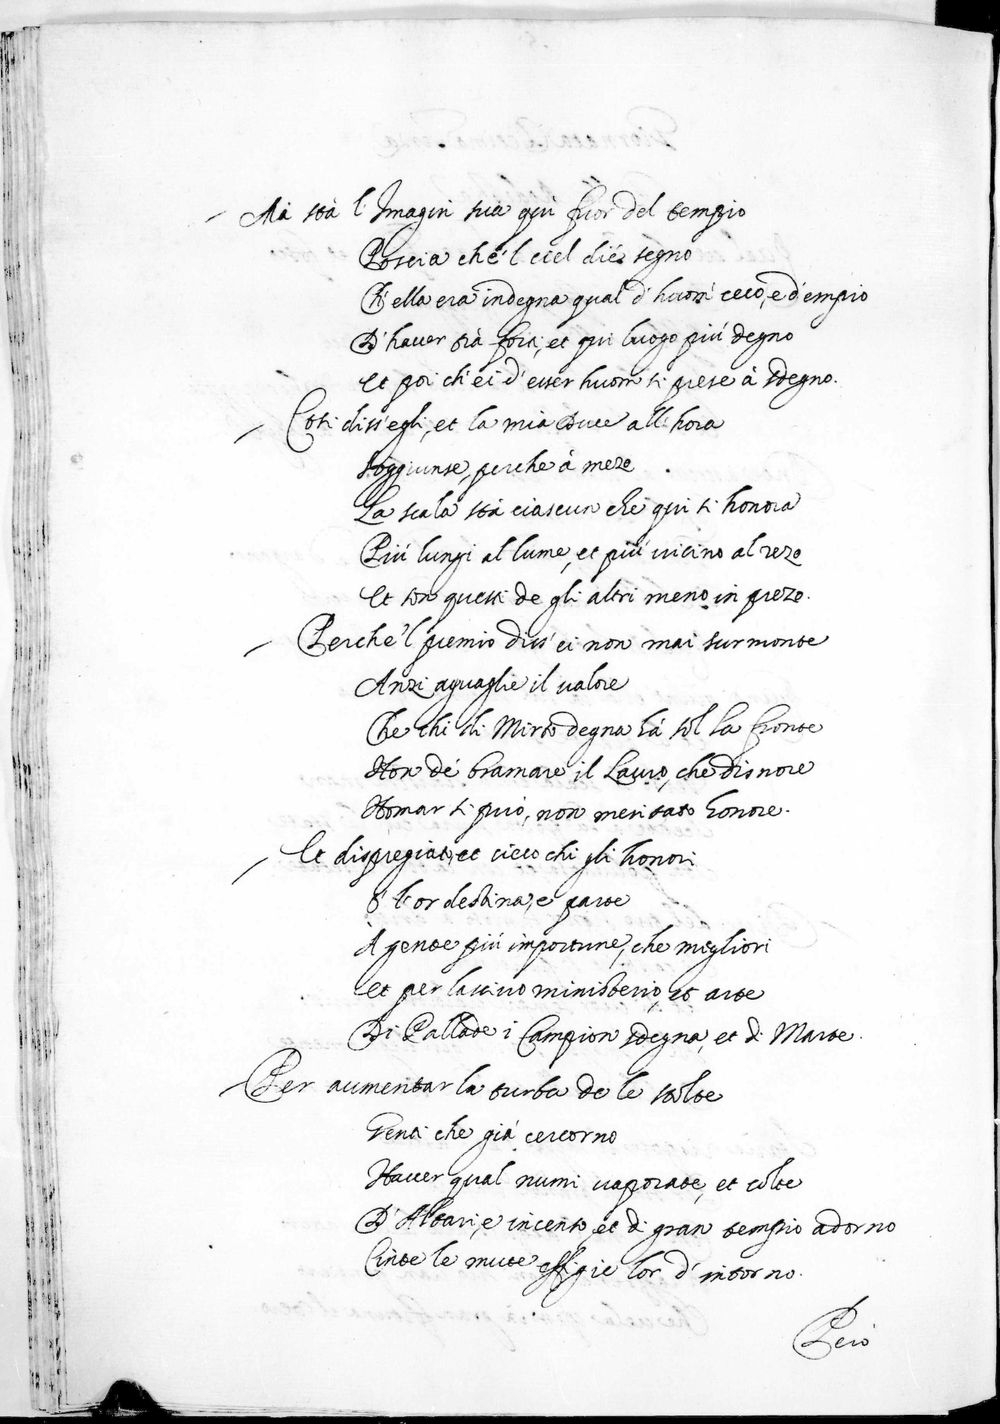 Mà stà l'Imagin sua quì fuor del tempio
Poscia che'l ciel diè segno
Ch'ella era indegna qual d'huom ceco, e d'empio
D'hauer trà fori, et qui luogo più degno
Et poi ch'ei d'esser huom si prese à sdegno.
Così diss'egli, et la mia Duce all'hora
Soggiunse, perche à meze
La scala stà ciascun che qui si honora
Più lungi al lume, et più vicino al reze
Et son questi de gli altri meno in preze.
Perche'l premio diss'ei non mai surmonte
Anzi aguaglie il valore
Che chi di Mirto degna hà sol la fronte
Non dè bramare il Lauro, che disnore
Nomar si può, non meritato honore.
Et dispregiato, et cieco chi gli honori
O l'or destina, e parte
À gente più importune, che migliori
Et per lasciuo ministerio, et arte
Di Pallade i Campion sdegna, et di Marte.
Per aumentar la turba de le stolte
Genti che già cercorno
Hauer qual numi vaporate, et colte
D'Altari, e incenso, et di gran tempio adorno
Cinte le mute effigie lor d'intorno.
Però